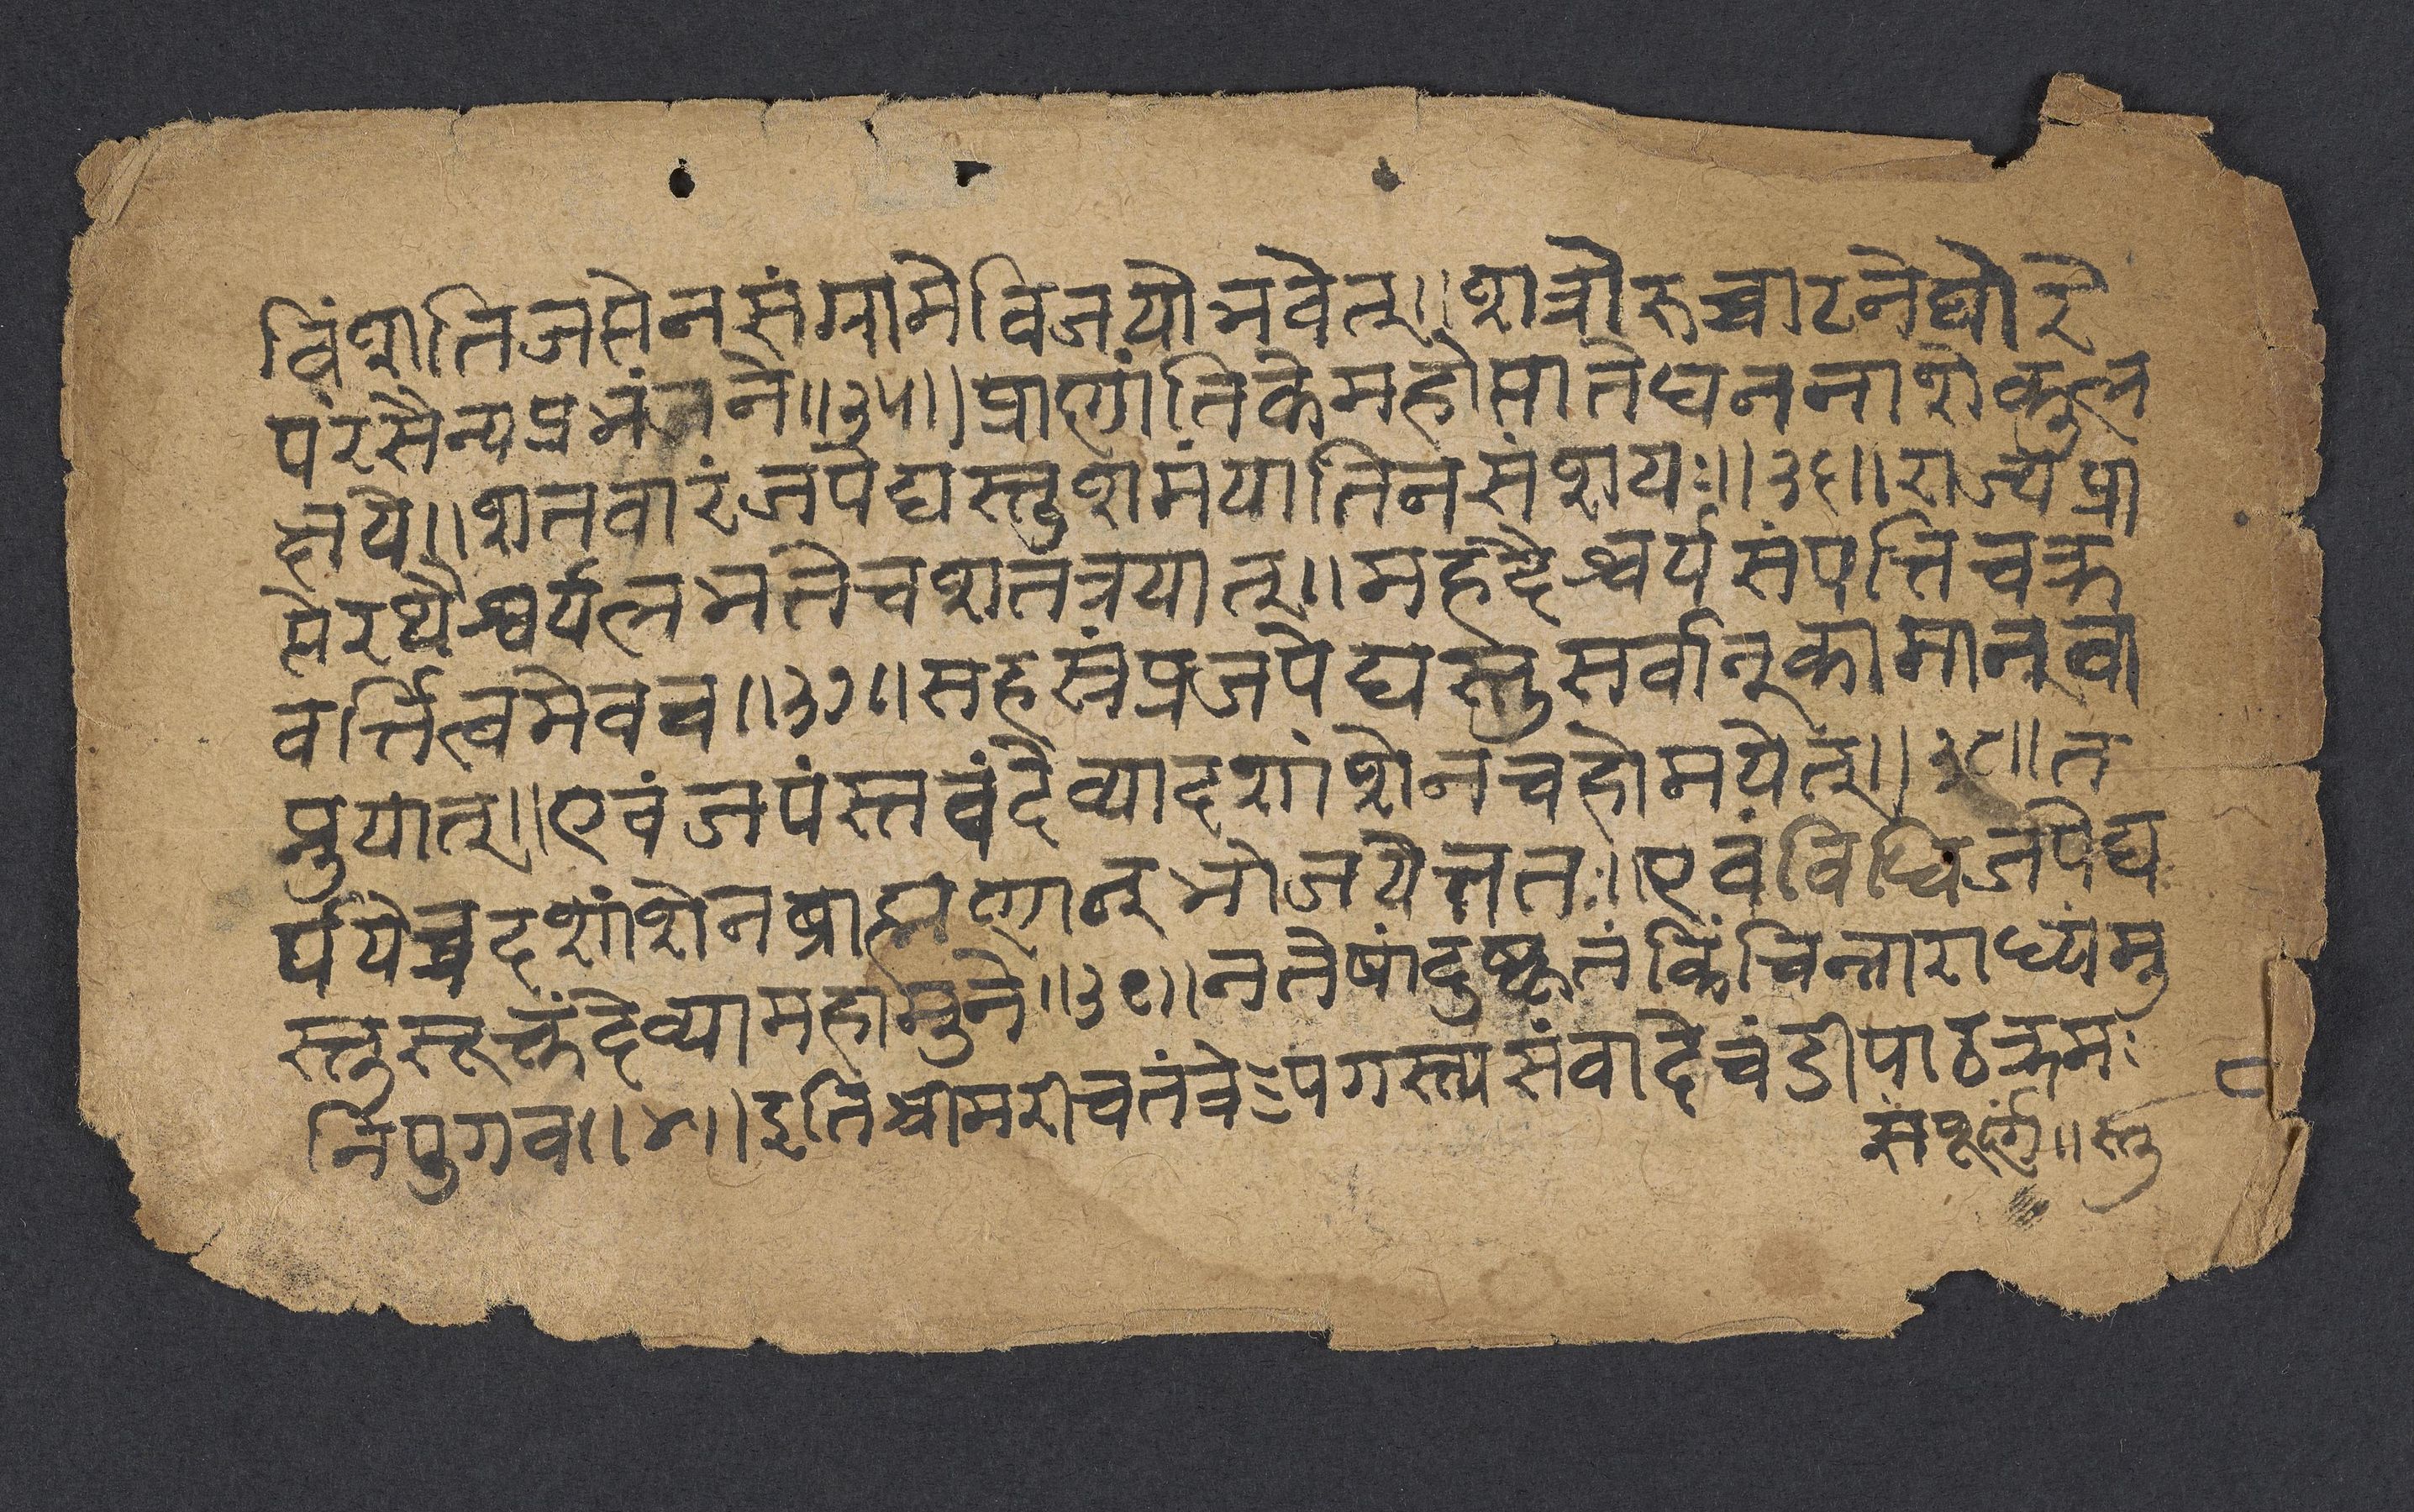 विंशतिजप्तेनसंग्रामेविजयोभवेत्॥शत्रोरुच्चाटनेघोरे
परसैन्यप्रभंजने॥३५॥प्राणांतिकेमहोत्पातेधननाशेकुल
क्षये॥शतवारंजपेद्यस्तुशमंयातिनसंशयः॥३६॥राज्यप्रा
प्तेरथैश्वर्यलभतेचशतत्रयात्॥महदैश्वर्यसंपत्तिचक्र
वर्त्तित्वमेवच॥३७॥सहस्रंप्रजपेद्यस्तुसर्वान्कामानवा
प्नुयात्॥एवंजपंस्तवंदेव्यादशांशेनचहोमयेत्॥३८॥त
र्पयेच्चदशांशेनब्राह्मणान्भोजयेत्ततः॥एवंविधिजपेद्य
स्तुसूक्तंदेव्यामहामुने॥३९॥नतेषांदुष्कृतंकिंचिन्नाराध्यंमु
निपुगव॥४०॥इतिश्रीमरीचतंत्रे गस्त्यसंवादेचंडीपाठक्रमः
संपूर्णं॥स्तु
८